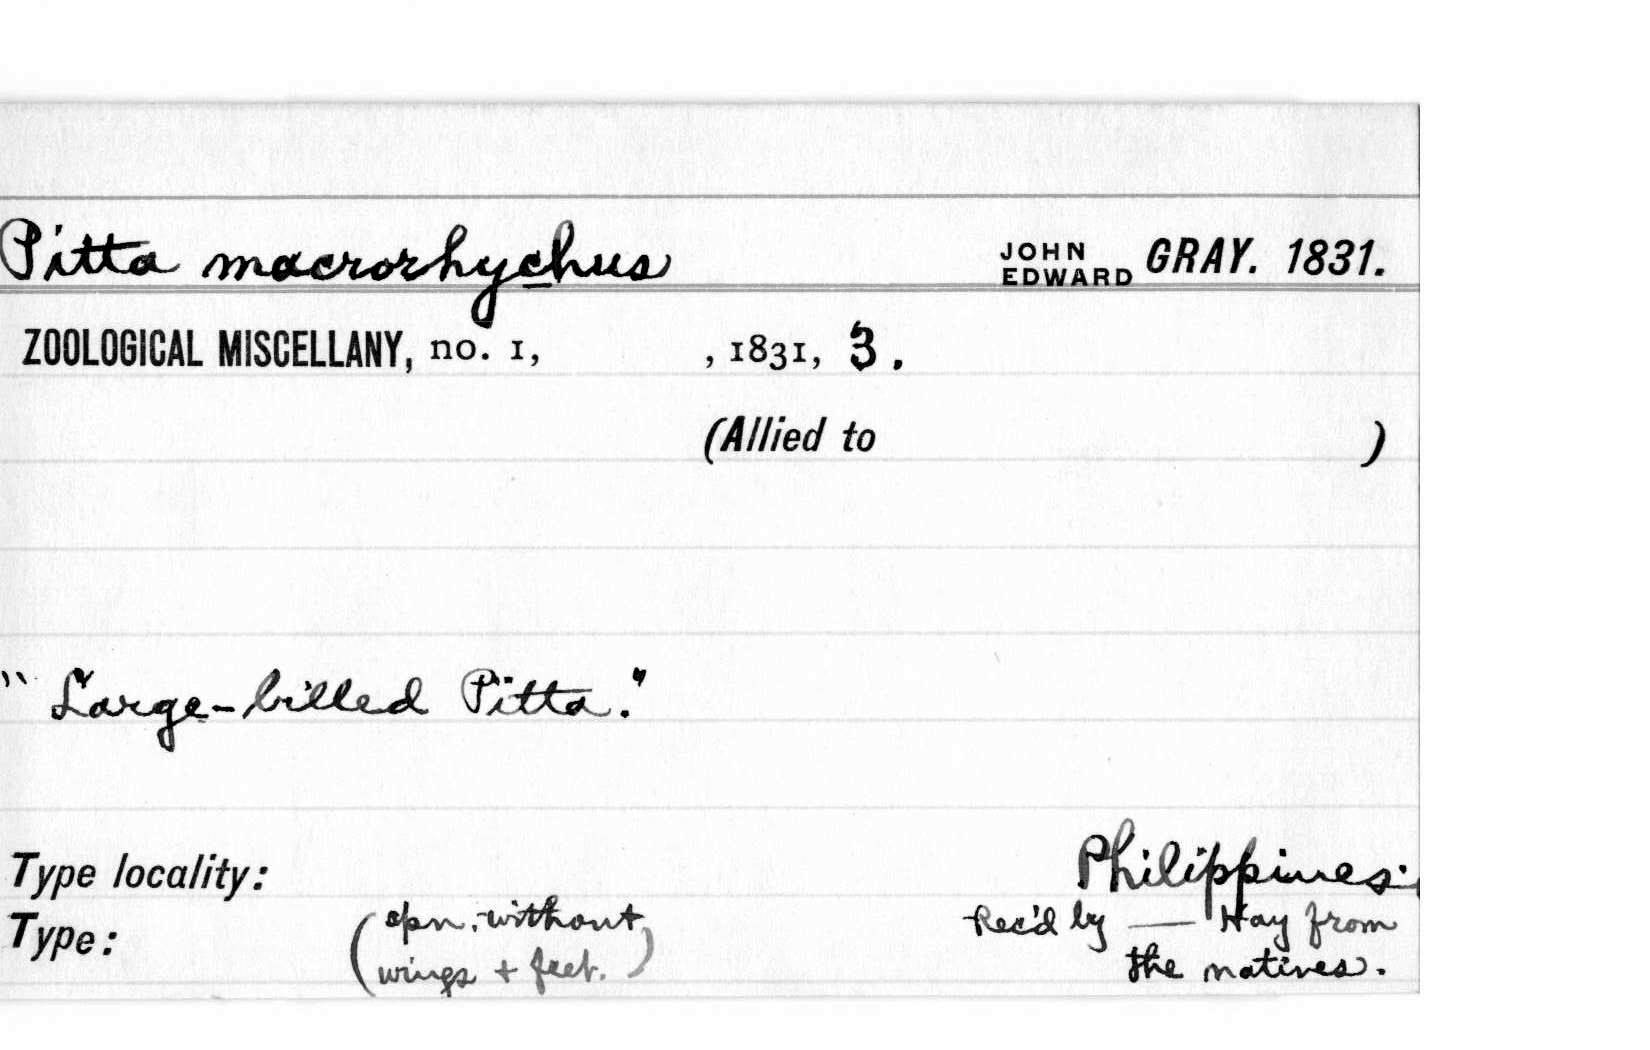 Pitta macrorhychus JOHN EDWARD GRAY. 1831.
ZOOLOGICAL MISCELLANY, no. 1, , 1831, 3.
(Allied to )
"Large-billed Pitta."
Type locality: Philippines.
Type: (spn. without wings + feet.) Rec'd by — Hay from
the natives.